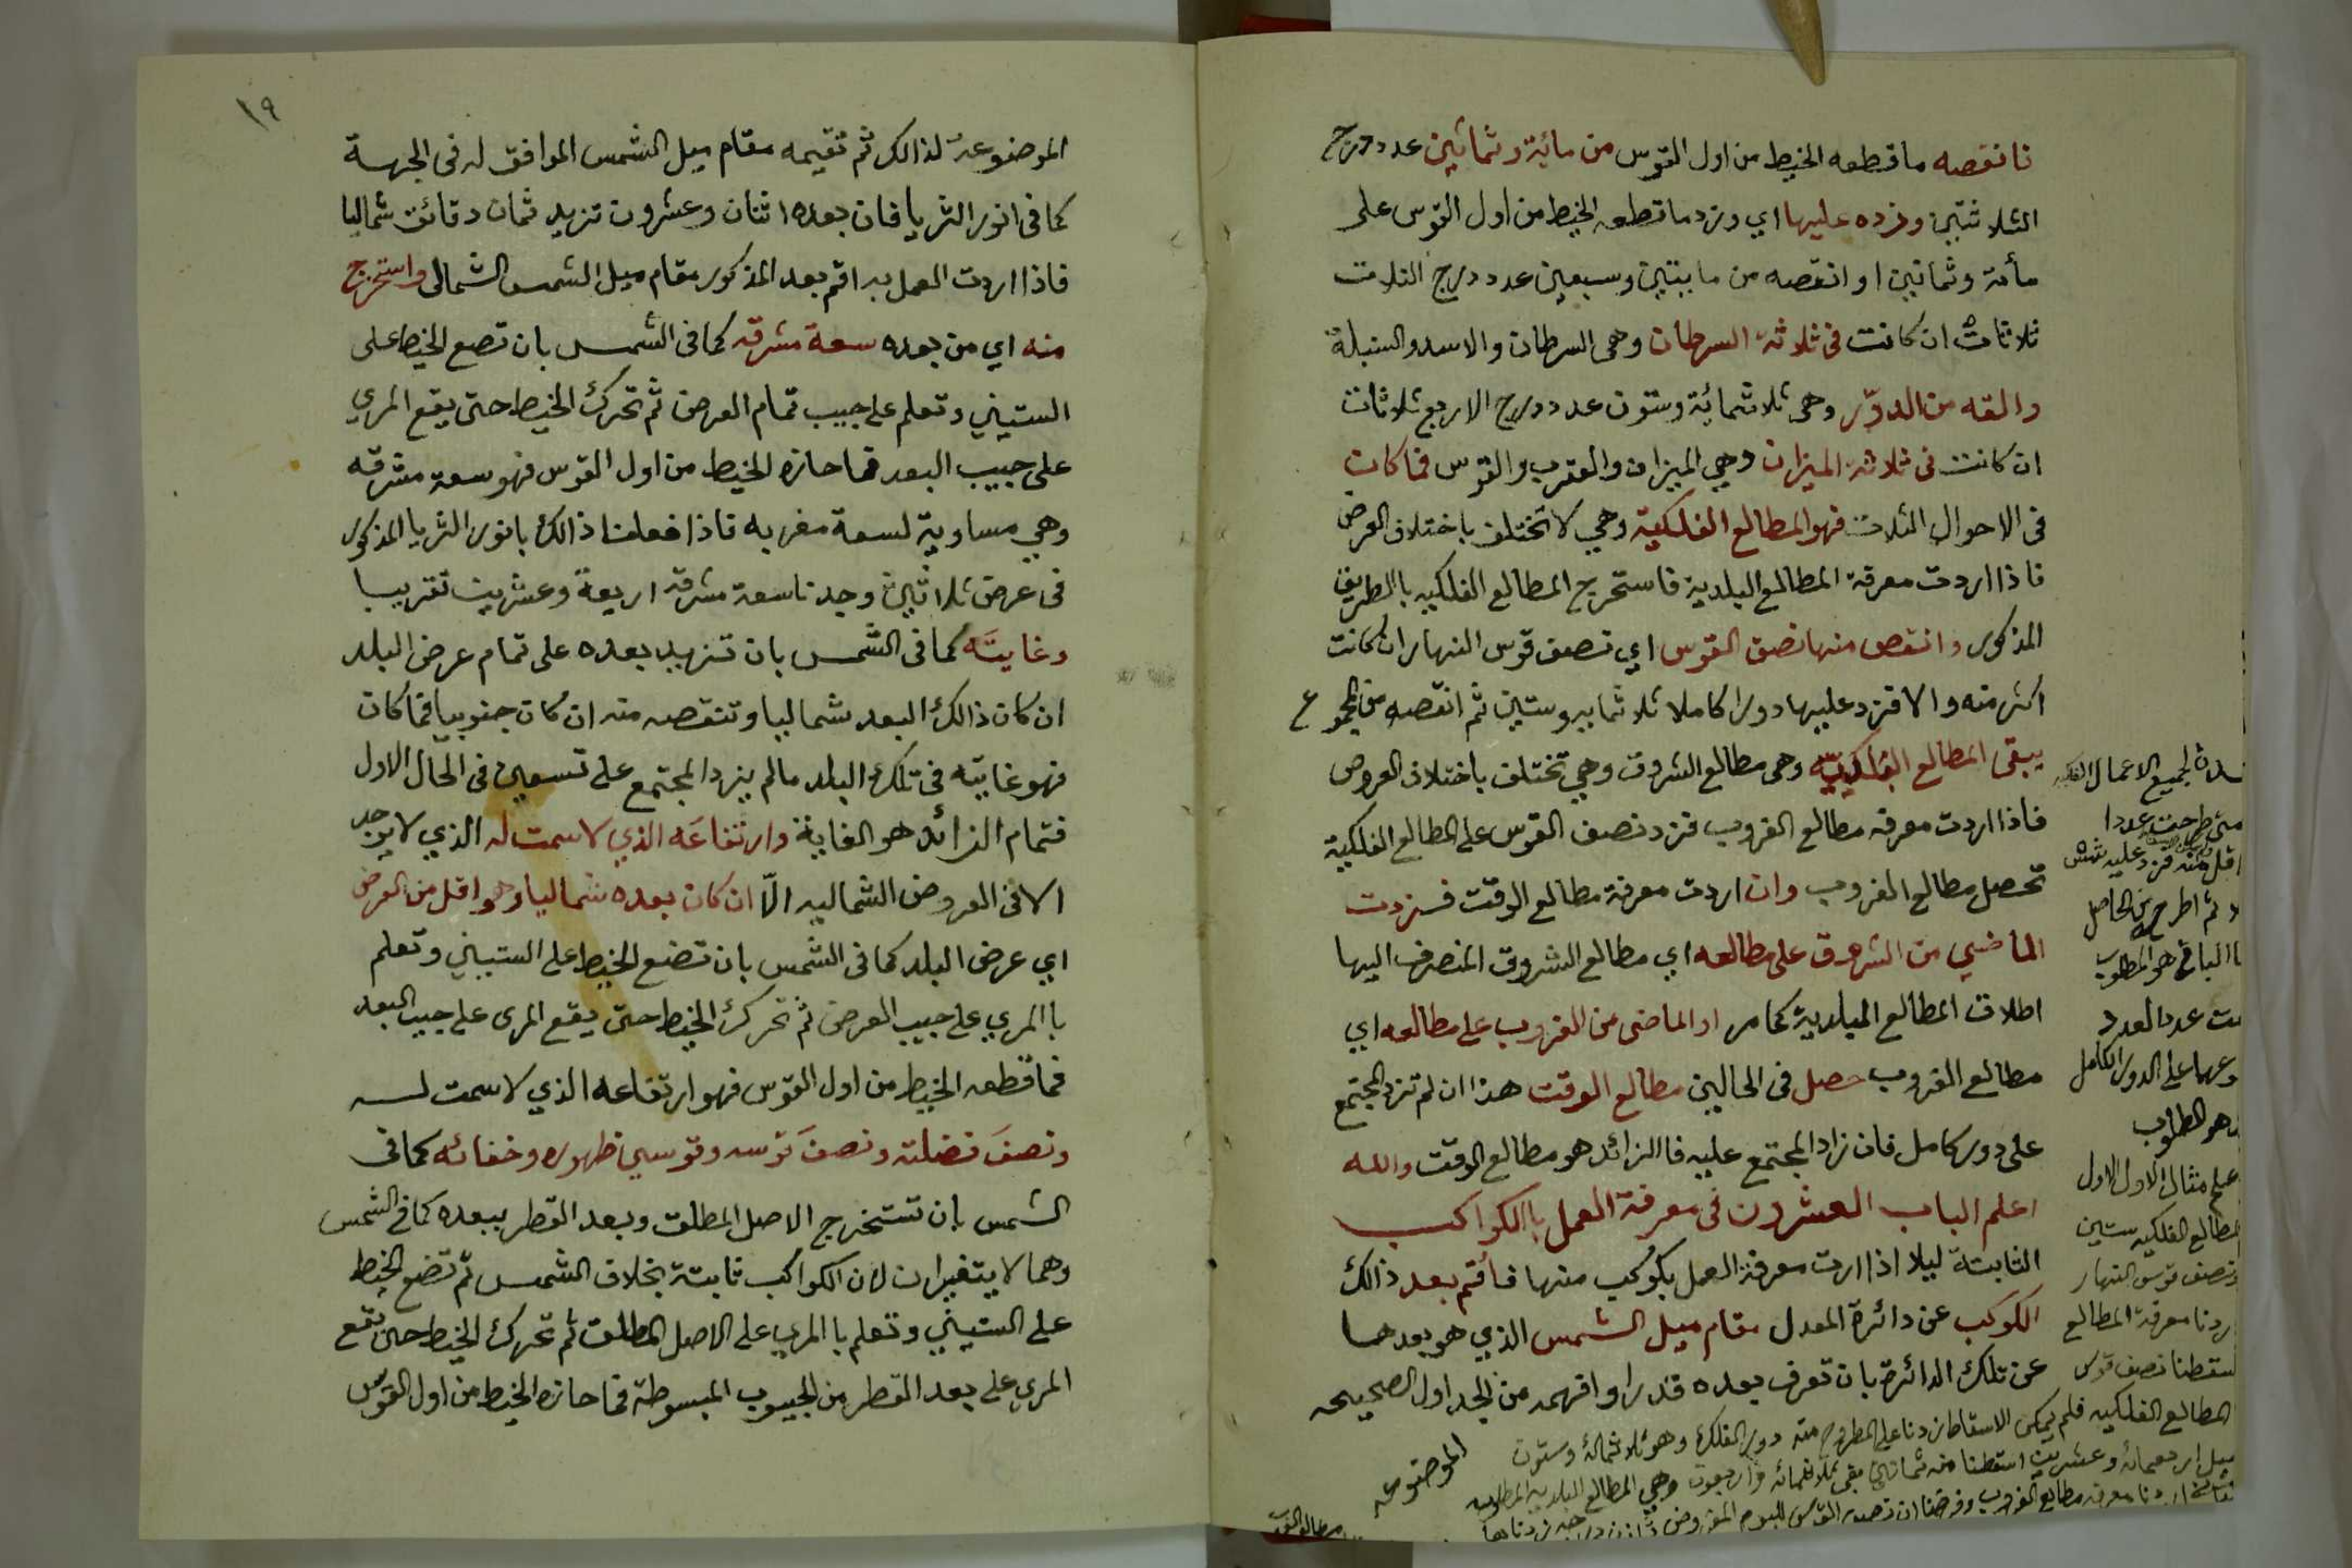 فانقصه ما قطعه الخيط من اول القوس من مائية وثمانين عدد درج
الثلاثتين وزده عليها اي وزد ما قطعه الخيط من اول القوس على
مأة وثمانين او انقصه من مايتين وسبعين عدد درج الثلاث
ثلاثات ان كانت في ثلاثة السرطان وهي السرطان والاسد والسنبلة
والقه من الدوّر وهي ثلاثمائة وستون عدد درج الاربع ثلاثات
ان كانت في ثلاثة الميزان وهي الميزان والعقرب والقوس فما كان
في الاحوال الثلاث فهو المطالع الفلكية وهي لا تختلف باختلاف العرض
فاذا اردت معرفة المطالع البلدية فاستخرج المطالع الفلكيه باالطريق
المذكور وانقص منها نصف القوس اي نصف قوس النهار ان كانت
اكثر منه والا فزد عليها دورا كاملا ثلاثمايه وستين ثم انقصه من المجموع
يبقى المطالع وهي مطالع الشروق وهي تختلف باختلاف العروض
فاذا اردت معرفه مطالع الغروب فزد نصف القوس على المطالع الفلكية
تحصل مطالع الغروب وان اردت معرفة مطالع الوقت فزدت
الماضي من الشروق على مطالعه اي مطالع الشروق المنصرف اليها
اطلاق المطالع البلدية كما مر او الماضى من الغروب على مطالعه اي
مطالع الغروب حصل في الحالين مطالع الوقت هذا ان لم تزد المجتمع
على دور كامل فان زاد المجتمع عليه فاالزائد هو مطالع الوقت والله
اعلم الباب العشرون في معرفة العمل باالكواكب
الثابتة ليلا اذا اردت معرفة العمل بكوكب منها فأقم بعد ذالك
الكوكب عن دائرة المعدل مقام ميل الشمس الذي هو بعدها
عن تلك الدائرة بان تعرف بعده قدرا وافهمه من الجداول الصحيحه
الموضوعه
لجميع الاعمال
متى طرحت عددا
اقل منه فزد عليه
ثم اطرح من الحاصل
الباقي هو المطلوب
عدد العدد
على الدور الكامل
هو المطلوب
على مثال الاول الاول
المطالع الفلكيه ستين
ونصف قوس النهار
اردنا معرفة المطالع
اسقطنا نصف قوس
المطالع الفلكيه فلم يمكن الاسقاط زدنا على المطروح منه دور الفلك وهو ثلاثمائة وستون
اربعمائة وعشرين اسقطنا منه ثمانين بقى ثلاثمائه واربعون وهي المطالع البلديه المطلوبه
اردنا معرفه مطالع الغروب وفرضنا ان نصف القوس لليوم المفروض
١٩
الموضوعة لذالك ثم تقيمه مقام ميل الشمس الموافق له في الجهة
كما في انور الثريا فان بعده اثنان وعشرون تزيد ثمان دقائق شماليا
فاذا اردت العمل به اقم بعد المذكور مقام ميل الشمس الشمالي واستخرج
منه اي من بعده سعة مشرقه كما في الشمس بان تضع الخيط على
الستيني وتعلم على جيب تمام العرض ثم تحرك الخيط حتى يقع المري
على جيب البعد فما حازه الخيط من اول القوس فهو سعة مشرقه
وهي مساوية لسعة مغربه فاذا فعلنا ذالك بانور الثريا المذكور
في عرض ثلاثين وجدنا سعة مشرقه اربعة وعشرين تقريبا
وغايتَه كما في الشمس بان تزيد بعده على تمام عرض البلد
ان كان ذالك البعد شماليا وتنقصه منه ان كان جنوبيا فما كان
فهو غايته في تلك البلد مالم يزد المجتمع على تسعين في الحال الاول
فتمام الزائد هو الغاية وارتفاعَه الذي لا سمت له الذي لا يوجد
الا في العروض الشماليه الّا ان كان بعده شماليا وهو اقل من العرض
اي عرض البلد كما في الشمس بان تضع الخيط على الستيني وتعلم
باالمري على جيب العرض ثم تحرك الخيط حتى يقع المرى على جيب البعد
فما قطعه الخيط من اول القوس فهو ارتفاعه الذي لا سمت له
ونصفَ فضلته ونصفَ قوسه وقوسي ظهوره وخفائه كما في
الشمس بان تستخرج الاصل المطلق وبعد القطر ببعده كما في الشمس
وهما لا يتغيران لان الكواكب ثابتة بخلاف الشمس ثم تضع الخيط
على الستيني وتعلم باالمري على الاصل المطلق ثم تحرك الخيط حتى تقع
المري على بعد القطر من الجيوب المبسوطة فما حازه الخيط من اول القوس